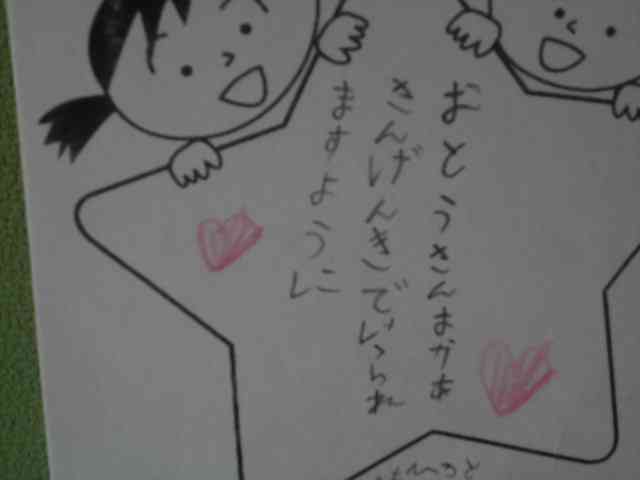 おとうさんおかあ
さんげんきでいられ
ますように